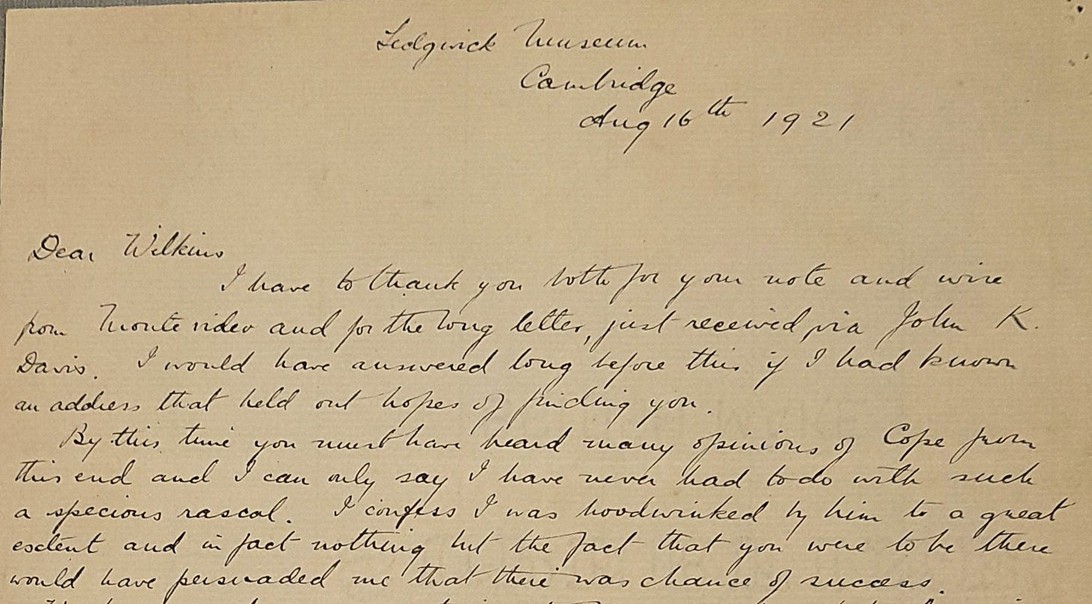 Sedgwick Museum
Cambridge
Aug 16th 1921
Dear Wilkins
I have to thank you both for your note and wire
from Monte video and for the long letter, just received, via John K.
Davis. I would have answered long before this if I had known
an address that held out hopes of finding you.
By this time you must have heard many opinions of Cope from
this end and I can only say I have never had to do with such
a specious rascal. I confess I was hoodwinked by him to a great
extent and in fact nothing but the fact that you were to be there
would have persuaded me that there was chance of success.